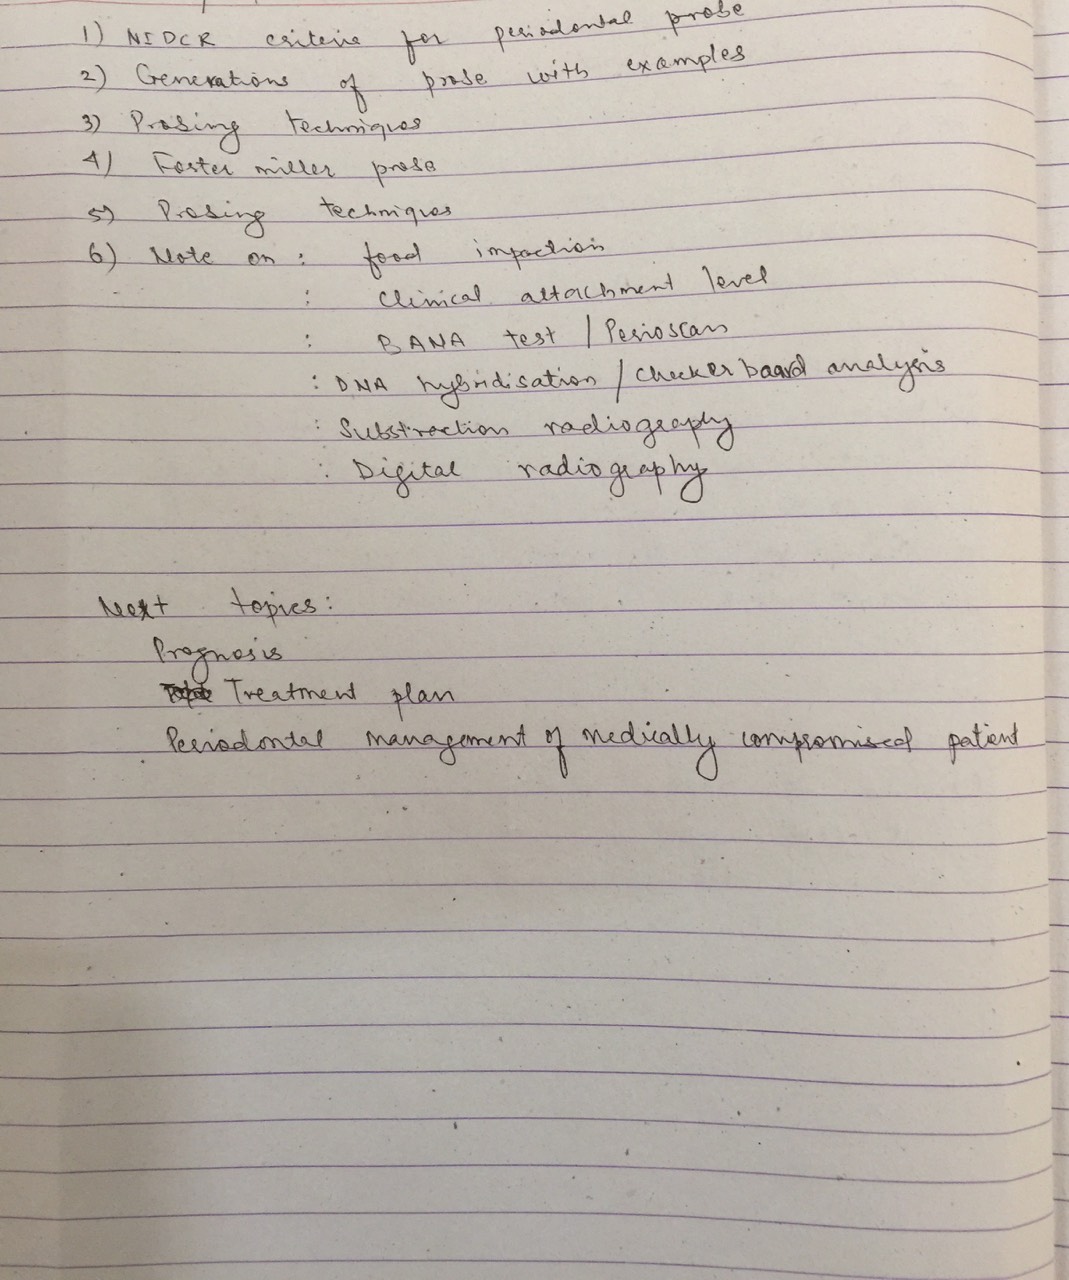 1) NIDCR criteria for periodontal probe
2) Generations of probe with examples
3) Probing techniques
4) Foster miller probe
5) Probing techniques
6) Note on : food impaction
: Clinical attachment level
: BANA test / Perioscan
: DNA hybridisation / checker baard analysis
: Substraction radiography
: Digital radiography
Next topics:
Prognosis
Treatment plan
Periodontal management of medically compromised patient